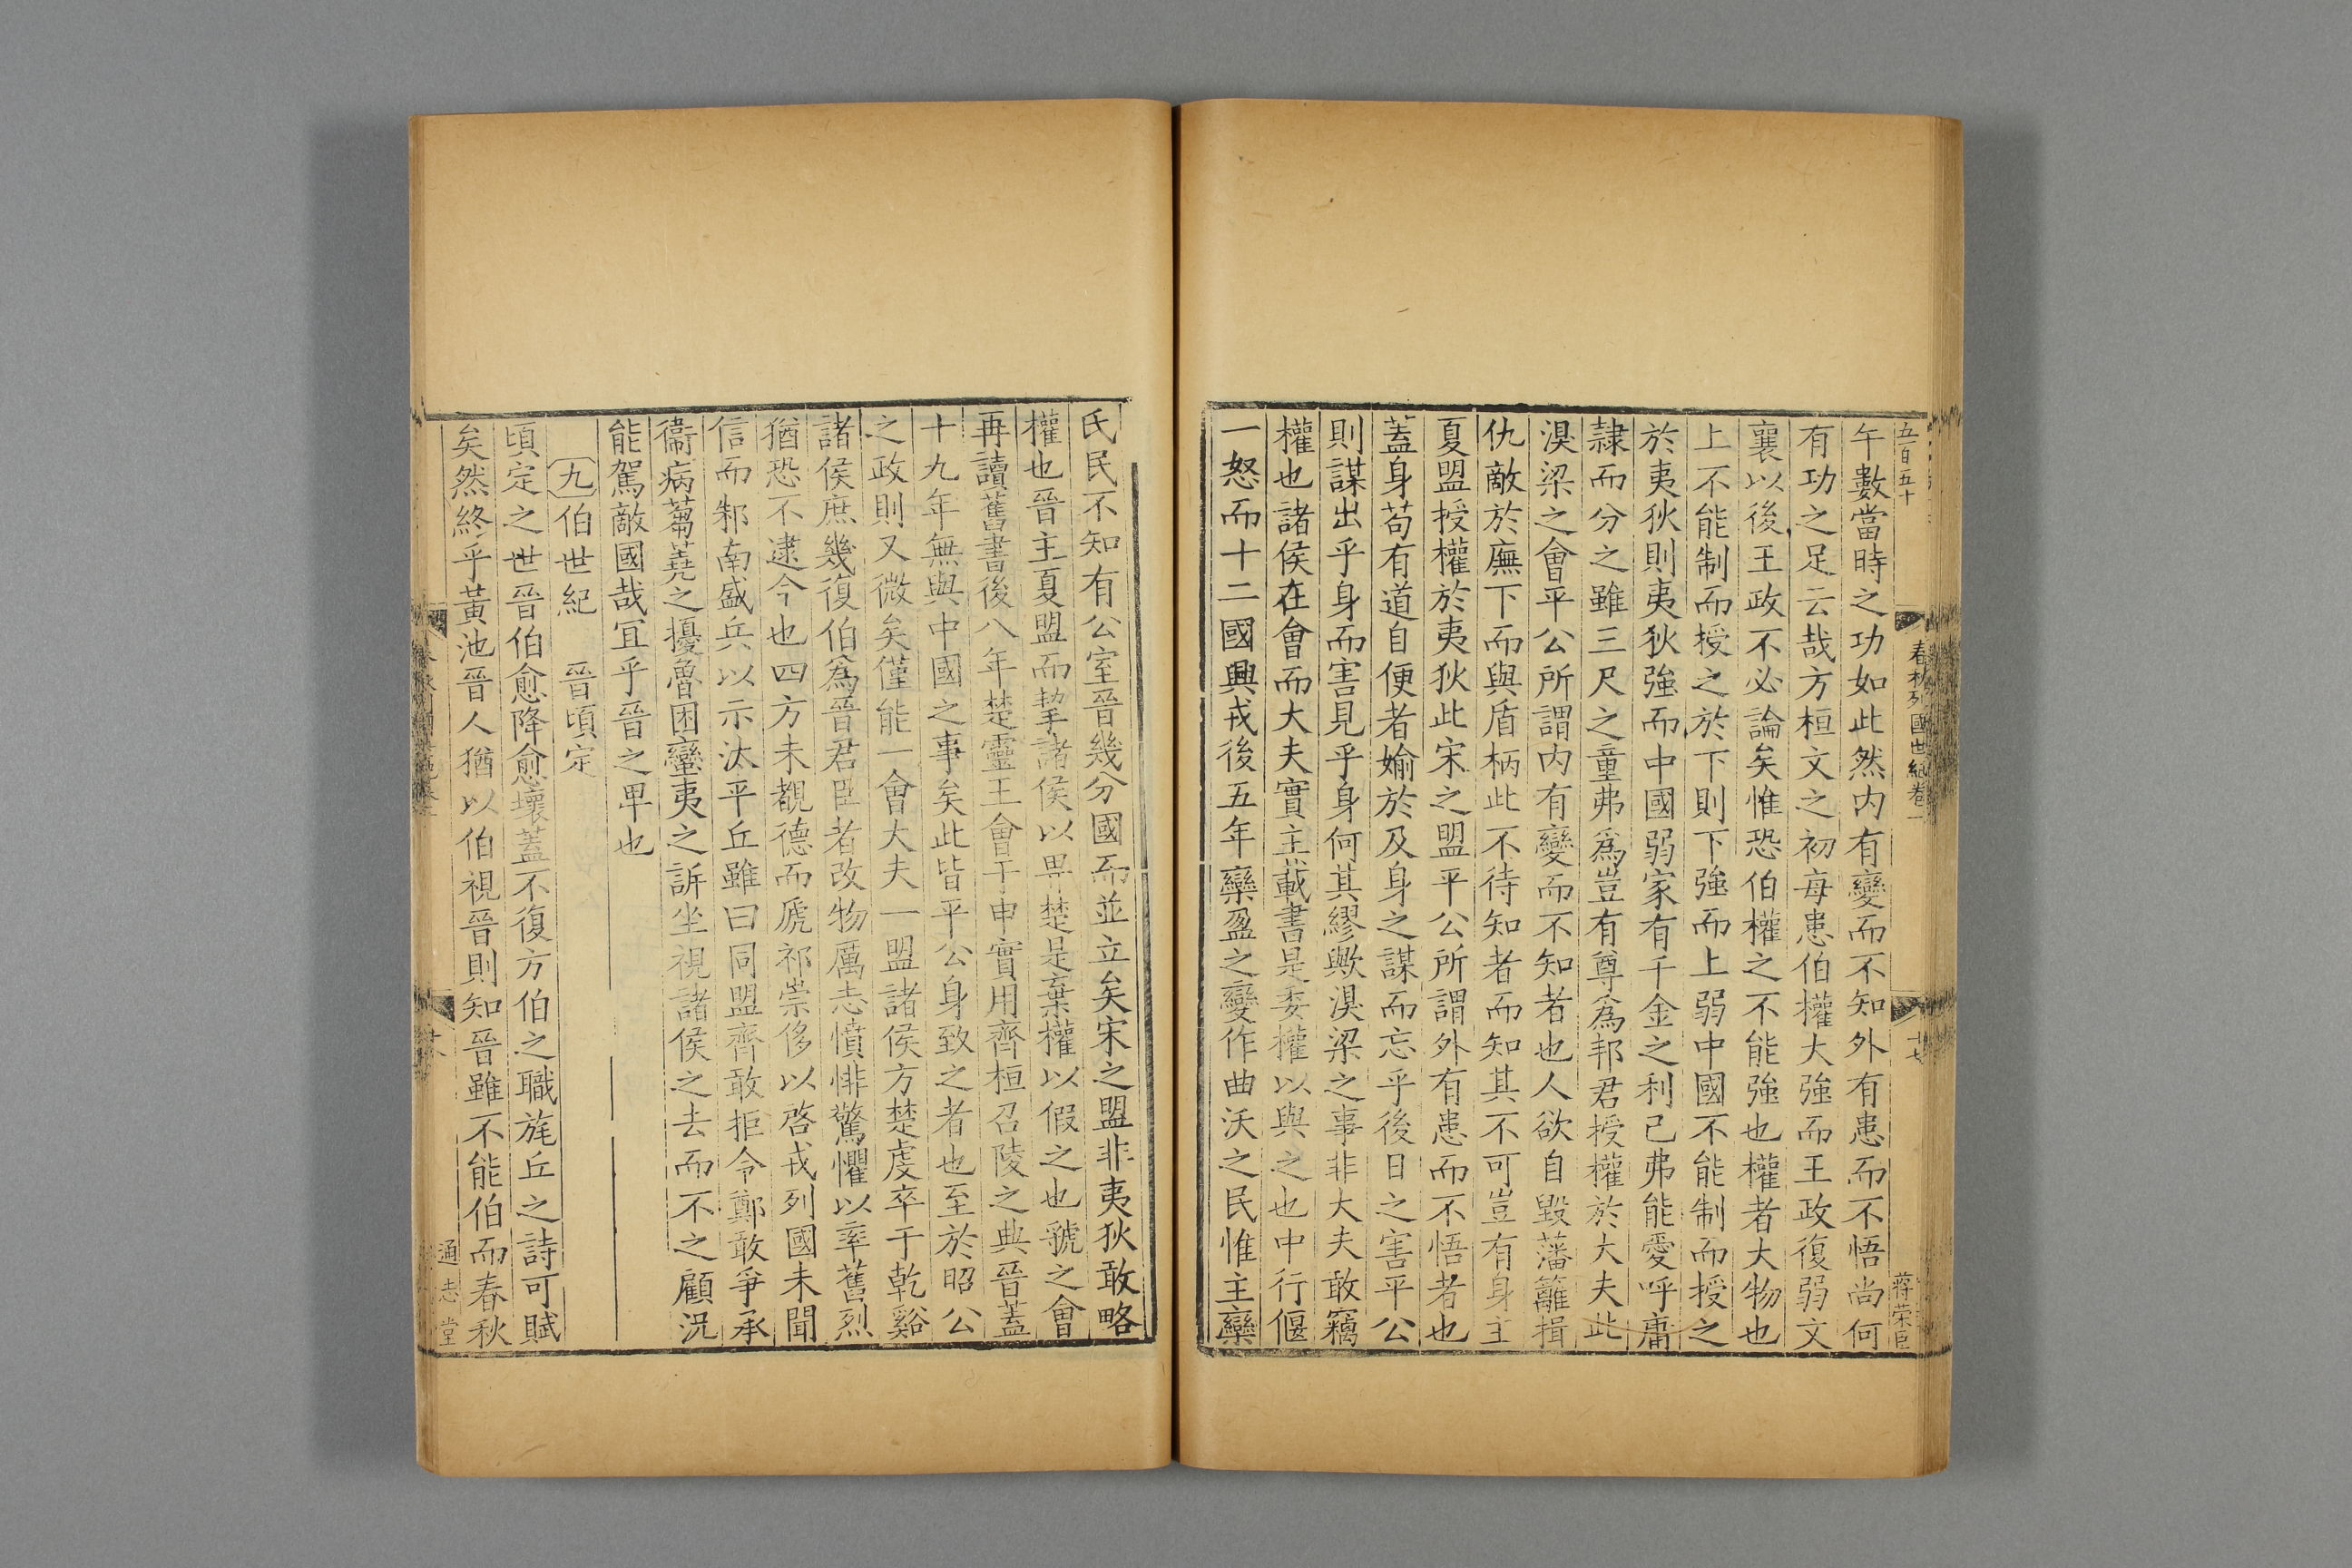 五百五十
春秋列國世紀卷一
十七
蒋荣臣
午數當時之功如此然内有變而不知外有患而不悟尚何
有功之足云哉方桓文之初每患伯權大強而王政復弱文
襄以後王政不必論矣惟恐伯權之不能強也權者大物也
上不能制而授之於下則下強而上弱中國不能制而授之
於夷狄則夷狄強而中國弱家有千金之利己弗能愛呼庸
隷而分之雖三尺之童弗爲豈有尊爲邦君授權於大夫此
湨梁之會平公所謂内有變而不知者也人欲自毀藩籬揖
仇敵於廡下而與盾柄此不待知者而知其不可豈有身主
夏盟授權於夷狄此宋之盟平公所謂外有患而不悟者也
蓋身苟有道自便者媮於及身之謀而忘乎後日之害平公
則謀出乎身而害見乎身何其繆歟湨梁之事非大夫敢竊
權也諸侯在會而大夫實主載書是委權以與之也中行偃
一怒而十二國興戎後五年欒盈之變作曲沃之民惟主欒
氏民不知有公室晉幾分國而並立矣宋之盟非夷狄敢略
權也晉主夏盟而挈諸侯以畀楚是棄權以假之也虢之會
再讀舊書後八年楚靈王會于申實用齊桓召陵之典晉蓋
十九年無與中國之事矣此皆平公身致之者也至於昭公
之政則又微矣僅能一會大夫一盟諸侯方楚虔卒于乾谿
諸侯庶幾復伯爲晉君臣者改物厲志憤悱驚懼以率舊烈
猶恐不逮今也四方未覩德而虒祁崇侈以啓戎列國未聞
信而邾南盛兵以示汰平丘雖曰同盟齊敢拒令鄭敢爭承
衞病蒭蕘之擾魯困蠻夷之訴坐視諸侯之去而不之顧況
能駕敵國哉宜乎晉之卑也
九伯世紀 晉頃定
頃定之世晉伯愈降愈壞蓋不復方伯之職旄丘之詩可賦
矣然終乎黃池晉人猶以伯視晉則知晉雖不能伯而春秋
十八
通志堂